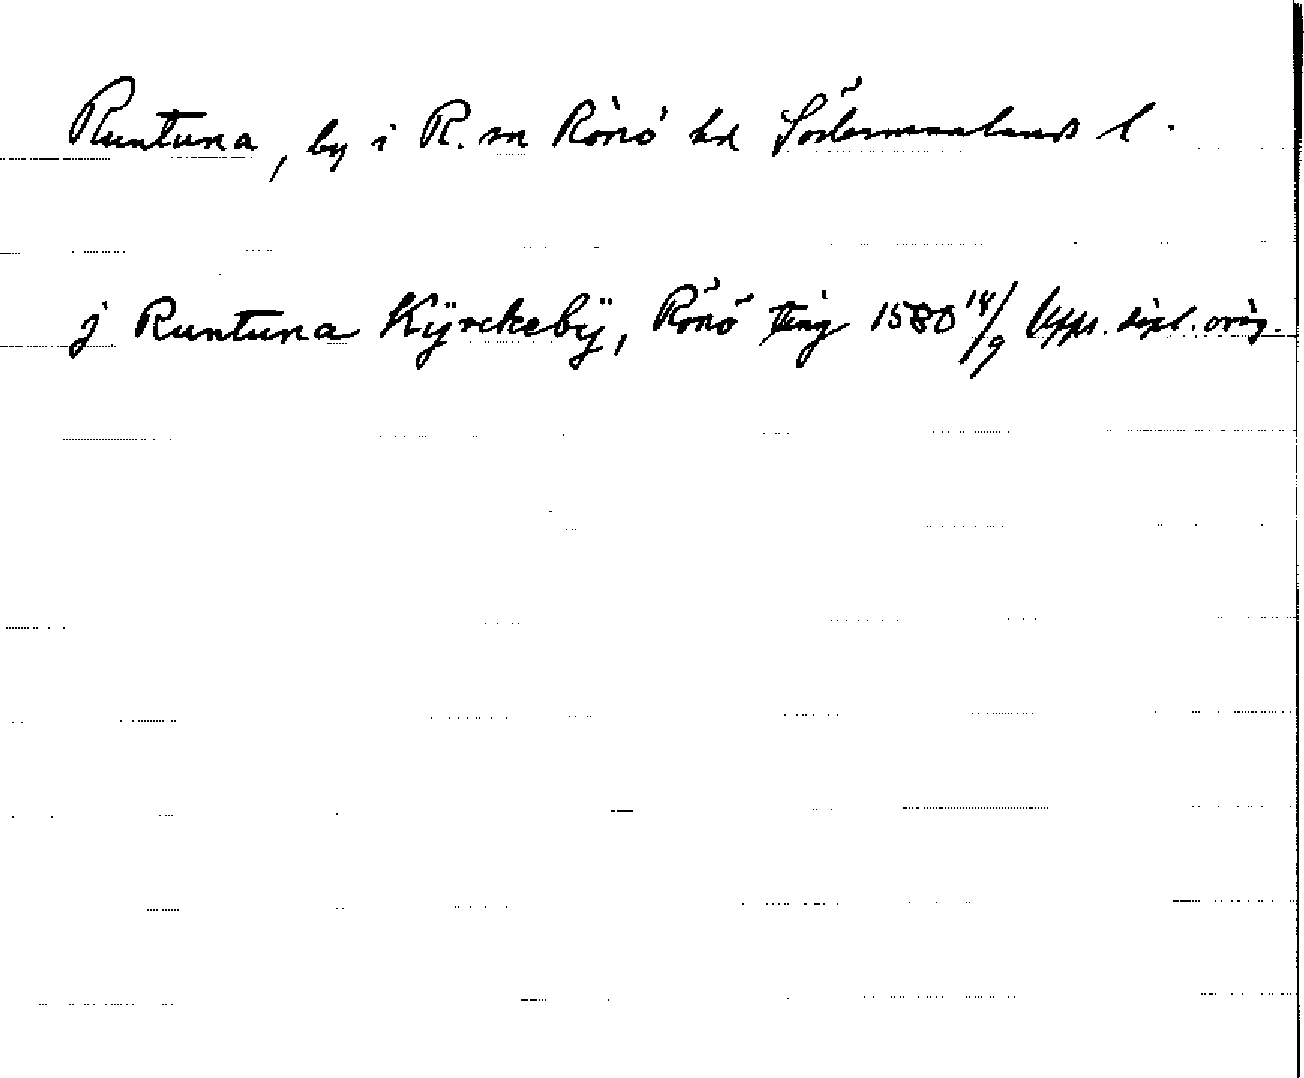 Runtuna, by i R. sn Rönö hd Södermanlands l.
j Runtuna Kÿrckebÿ, Rönö ting 1580 14/9 Upps. dipl. orig.